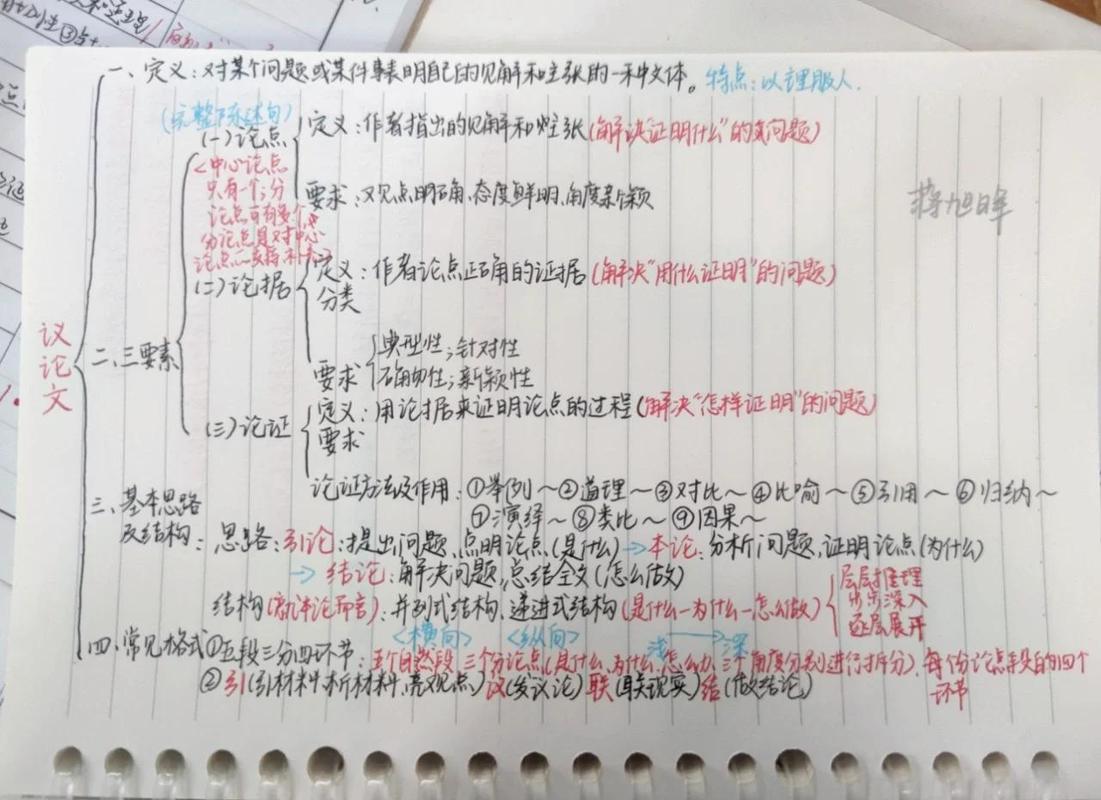 议论文
一、定义：对某个问题或某件事表明自己的见解和主张的一种文体。特点：以理服人.
(完整陈述句)
二、三要素
(一)论点
<中心论点
只有一个；分
论点可有多个,
分论点是对中心
论点
定义：作者指出的见解和主张(解决"证明什么"的问题)
要求：观点明确、态度鲜明、角度新颖
蒋旭晖
(二)论据
定义：作者论点正确的证据(解决"用什么证明"的问题)
分类
要求
典型性；针对性
确切性；新颖性
(三)论证
定义：用论据来证明论点的过程(解决"怎样证明"的问题)
要求
论证方法及作用：①举例～②道理～③对比～④比喻～⑤引用～⑥归纳～
⑦演绎～⑧类比～⑨因果～
三、基本思路
及结构：思路：引论：提出问题,点明论点(是什么)→本论：分析问题,证明论点(为什么)
→结论：解决问题,总结全文(怎么做)
结构(就评论而言)：并列式结构、递进式结构(是什么—为什么—怎么做)
层层推理
步步深入
逐层展开
<横向> <纵向> 浅→深
四、常见格式①五段三分四环节：五个自然段,三个分论点(是什么、为什么、怎么办,三个角度分别进行拆分)、每个分论点段的四个
环节
②引(引材料,析材料,亮观点)议(发议论)联(联现实)结(做结论)